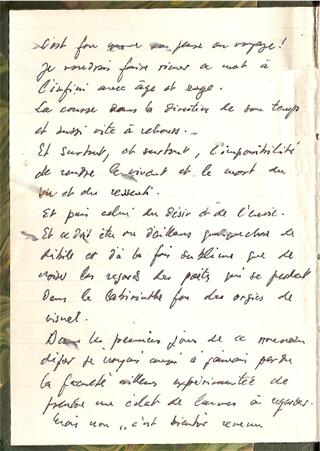 C'est fou ce qu'on pense au voyage!
Je voudrais faire rimer ce mot à
l'infini avec âge et rage.
La course dans la direction de son temps
et aussi vite à rebours.
Et surtout, et surtout, l'impossibilité
de rendre le vivant et le mort du
vu et du ressenti.
Et puis celui du désir et de l'envie.
Et ce doit être ou d'ailleurs quelque chose de
débile et d'à la fois sublime que de
croiser les regards des poètes qui se perdent
dans le labyrinthe fou des orgies de
visuel.
Dans les premiers jours de ce nouveau
départ je croyais avoir à jamais perdu
la faculté ailleurs expérimentée de
prendre une éclat de larmes à regarder.
Mais non, c'est bientôt revenu